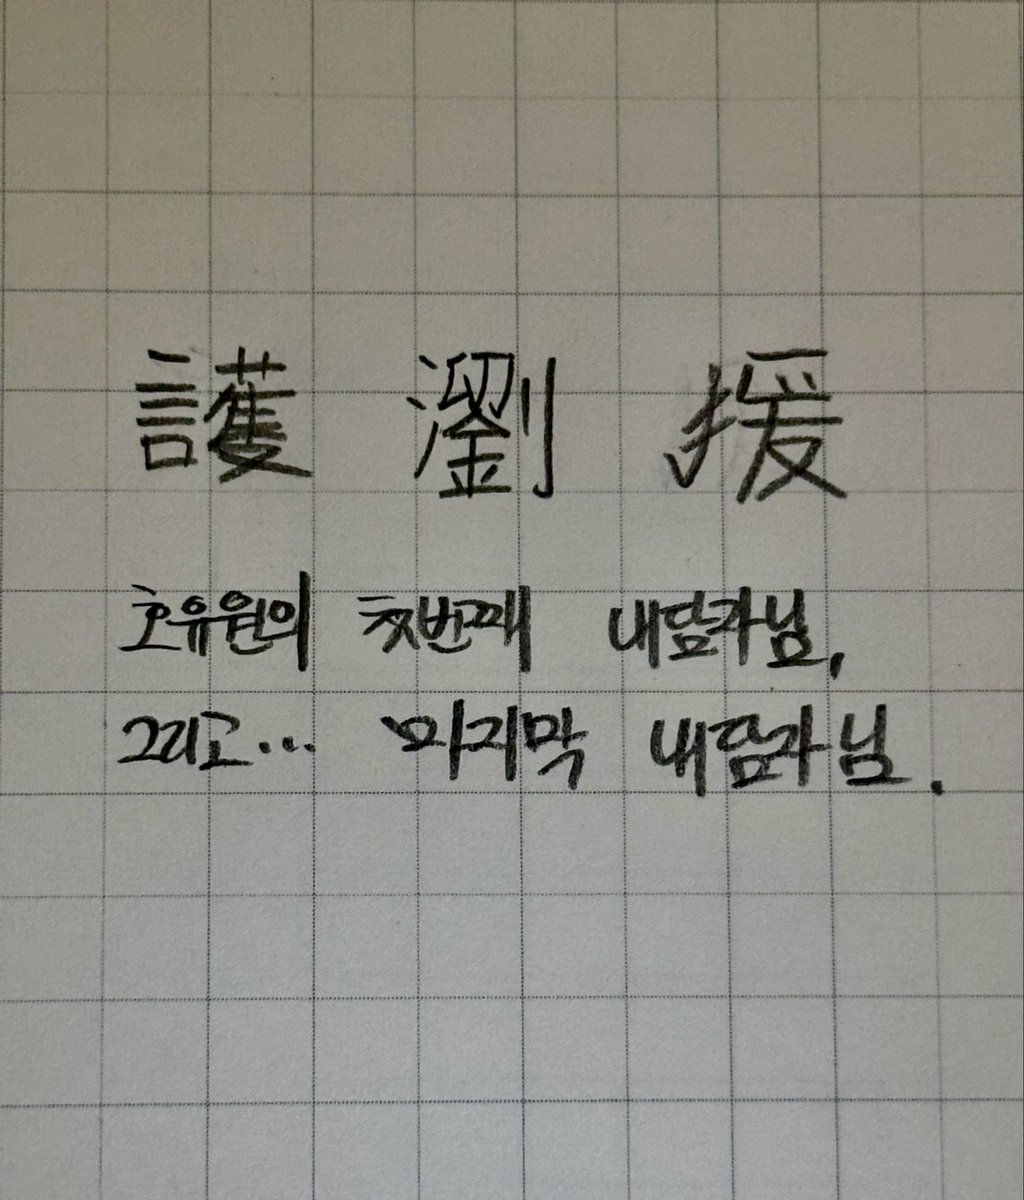 護 瀏 援
호유원의 첫번째 내담자님,
그리고... 마지막 내담자님.